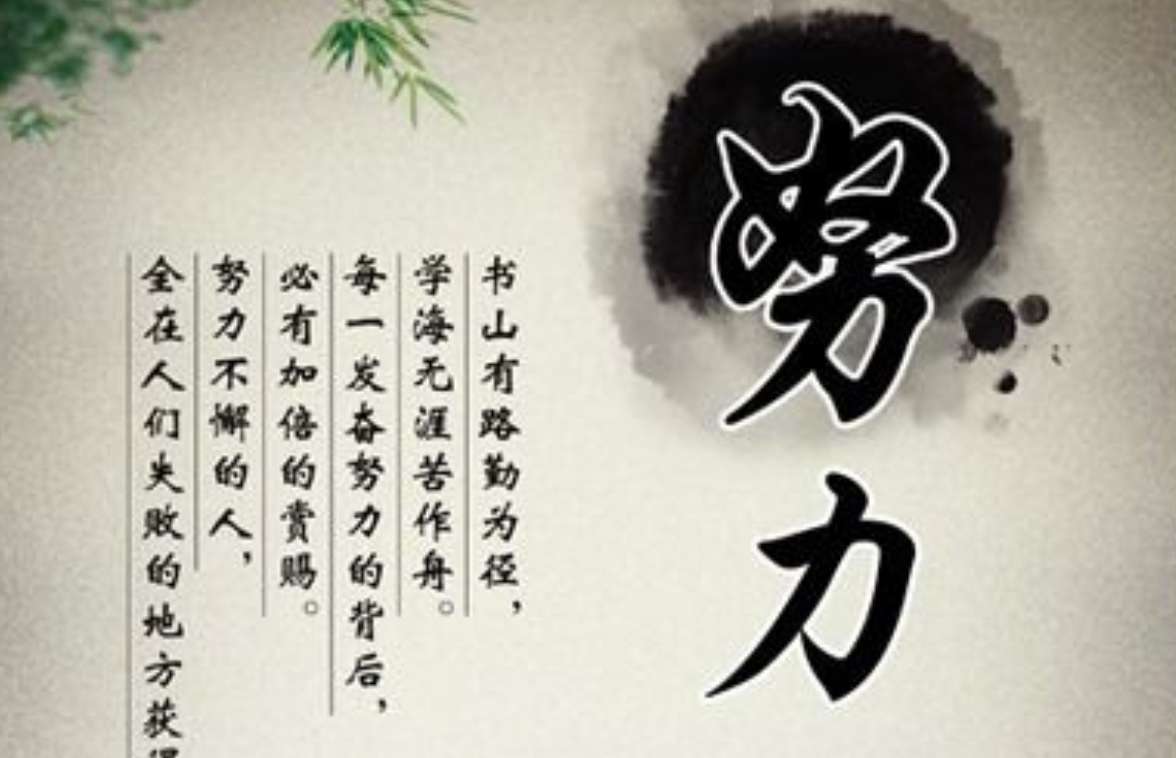 努力
书山有路勤为径，
学海无涯苦作舟。
每一发奋努力的背后，
必有加倍的赏赐。
努力不懈的人，
全在人们失败的地方获